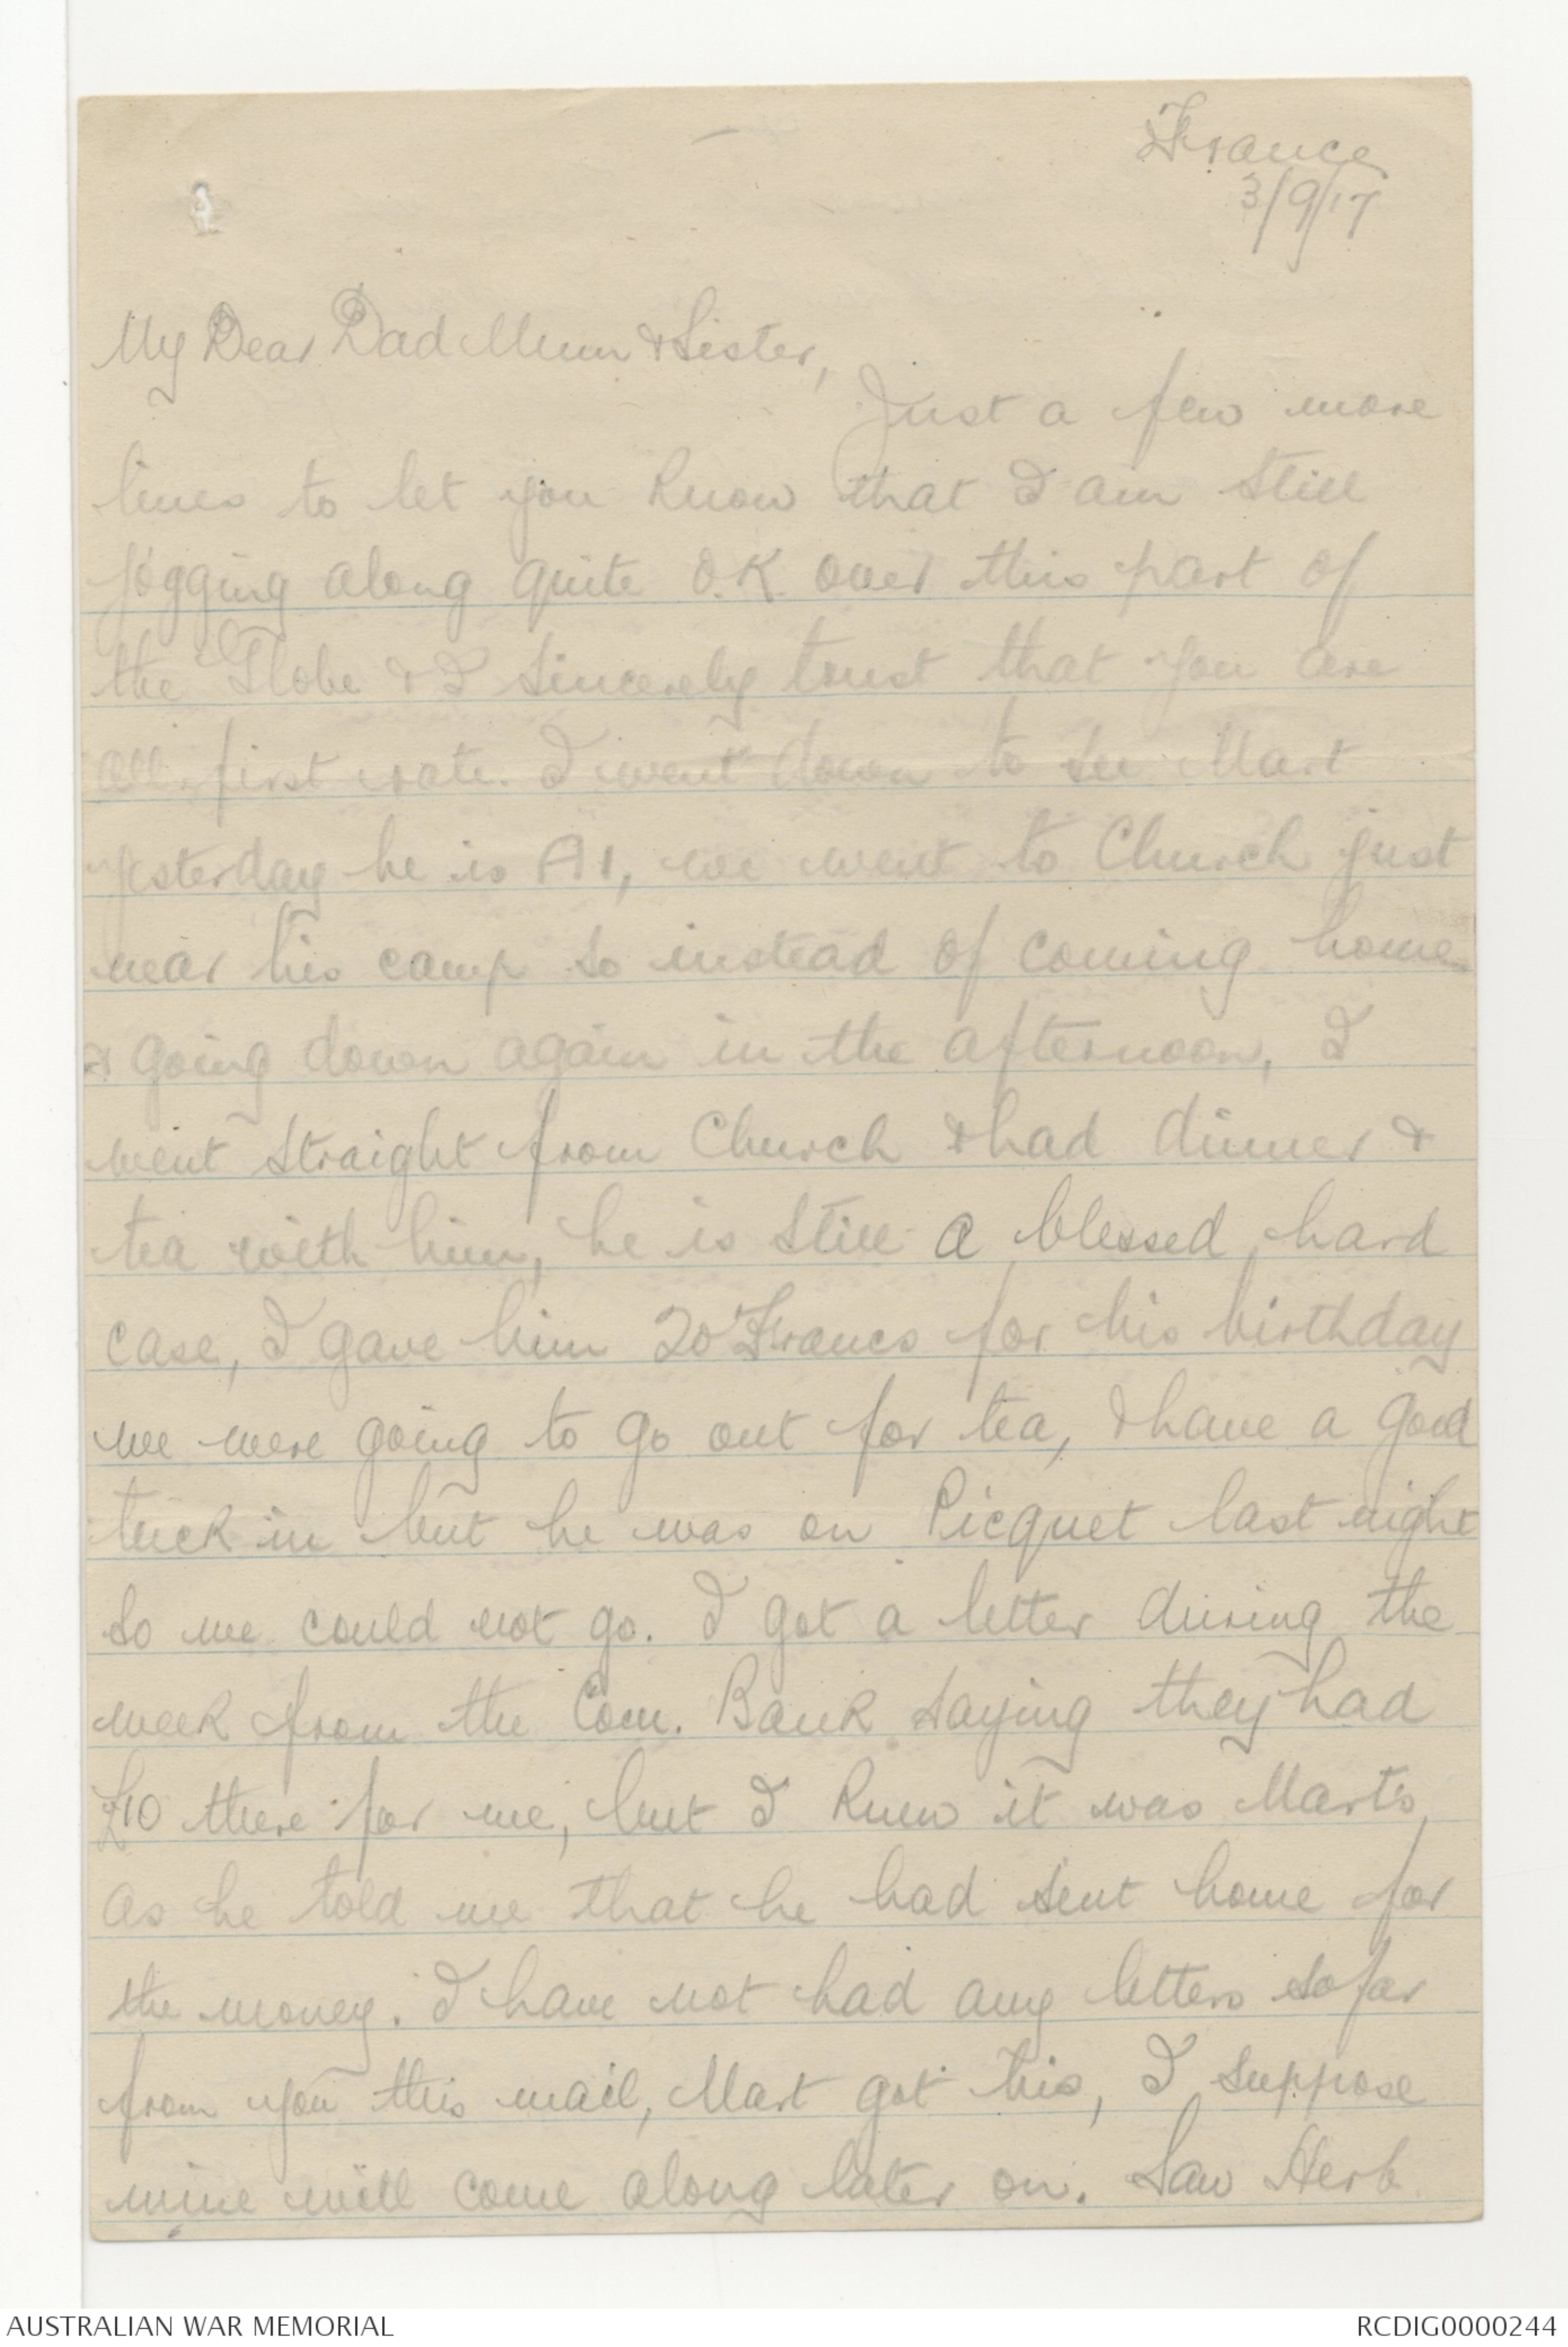 France
3/9/17
My Dear Dad Mum & Sister,
Just a few more
lines to let you know that I am still
jogging along quite O.K. over this part of
the Globe & I sincerely trust that you are
all first rate. I went down to see Mart
yesterday he is A1, we went to Church just
near his camp so instead of coming home
& going down again in the afternoon, I
went straight from Church & had dinner &
tea with him, he is still a blessed hard
case, I gave him 20 Francs for his birthday
we were going to go out for tea, & have a good
tuck in but he was on Picquet last night
so we could not go. I got a letter during the
week from the Com. Bank saying they had
£10 there for me, but I knew it was Mart's,
as he told me that he had sent home for
the money. I have not had any letters so far
from you this mail, Mart got his, I suppose
mine will come along later on. Saw Herb
AUSTRALIAN WAR MEMORIAL
RCDIG0000244